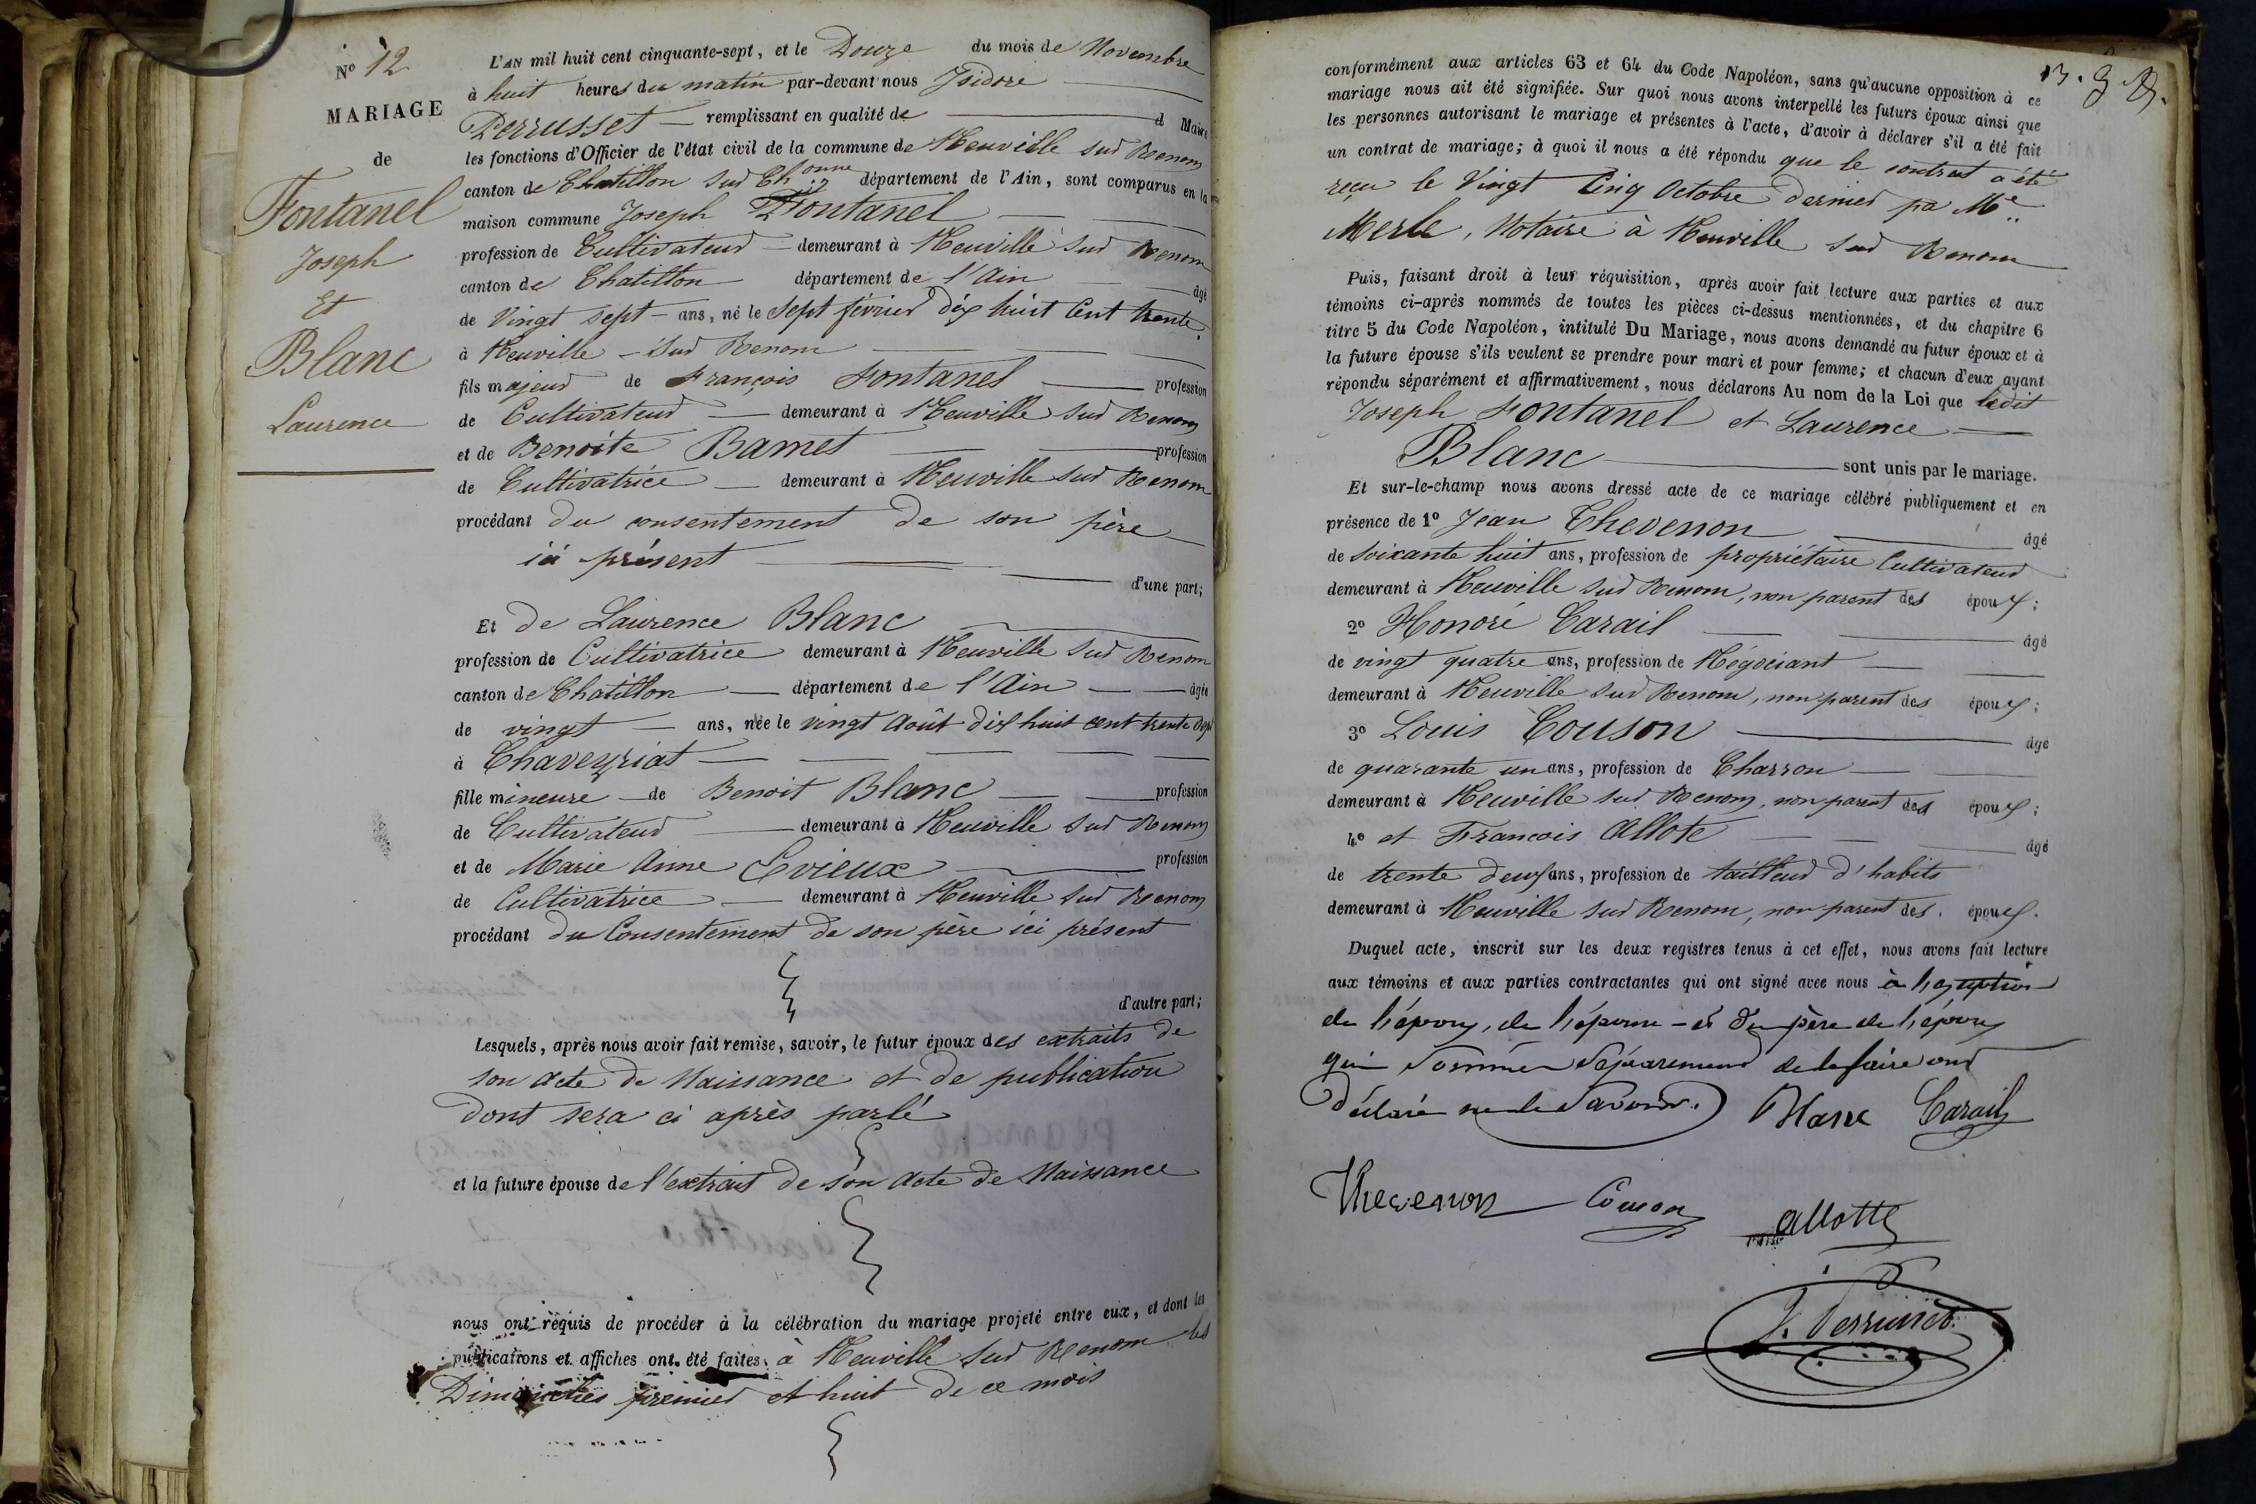 N° 12
MARIAGE
de
Fontanel
Joseph
Et
Blanc
Laurence
L'AN mil huit cent cinquante-sept, et le Douze du mois de Novembre
à huit heures du matin par-devant nous Isidore
Perrusset remplissant en qualité de d Maire
les fonctions d'Officier de l'état civil de la commune de Neuville sur Renom
canton de Chatillon sur Chonne département de l'Ain, sont comparus en la
maison commune Joseph Fontanel
profession de Cultivateur demeurant à Neuville sur Renom
canton de Chatillon département de l'Ain âgé
de Vingt sept ans, né le sept février dix huit Cent trente
à Neuville sur Renom
fils majeur de François Fontanel profession
de Cultivateur demeurant à Neuville sur Renom
et de Benoite Bamet profession
de Cultivatrice demeurant à Neuville sur Renom
procédant du consentement de son père
ici présent
d'une part;
Et de Laurence Blanc
profession de Cultivatrice demeurant à Neuville sur Renom
canton de Chatillon département de l'Ain âgée
de vingt ans, née le vingt Août dix huit cent trente sept
à Chaveyriat
fille mineure de Benoit Blanc profession
de Cultivateur demeurant à Neuville sur Renom
et de Marie Anne Evieux profession
de Cultivatrice demeurant à Neuville sur Renom
procédant du Consentement de son père ici présent
d'autre part;
Lesquels, après nous avoir fait remise, savoir, le futur époux des extraits de
son acte de Naissance et de publication
dont sera ci après parlé
et la future épouse de l'extrait de son acte de Naissance
nous ont requis de procéder à la célébration du mariage projeté entre eux, et dont les
publications et affiches ont été faites à Neuville sur Renom les
Dimanches premier et huit de ce mois
conformément aux articles 63 et 64 du Code Napoléon, sans qu'aucune opposition à ce
mariage nous ait été signifiée. Sur quoi nous avons interpellé les futurs époux ainsi que
les personnes autorisant le mariage et présentes à l'acte, d'avoir à déclarer s'il a été fait
un contrat de mariage; à quoi il nous a été répondu que le contrat a été
reçu le Vingt Cinq Octobre dernier pa Me
Merle, Notaire à Neuville sur Renom
Puis, faisant droit à leur réquisition, après avoir fait lecture aux parties et aux
témoins ci-après nommés de toutes les pièces ci-dessus mentionnées, et du chapitre 6
titre 5 du Code Napoléon, intitulé Du Mariage, nous avons demandé au futur époux et à
la future épouse s'ils veulent se prendre pour mari et pour femme; et chacun d'eux ayant
répondu séparément et affirmativement, nous déclarons Au nom de la Loi que ledit
Joseph Fontanel et Laurence
Blanc sont unis par le mariage.
Et sur-le-champ nous avons dressé acte de ce mariage célébré publiquement et en
présence de 1° Jean Thevenon âgé
de soixante huit ans, profession de propriétaire Cultivateur
demeurant à Neuville sur Renom, non parent des époux;
2° Honoré Carail âgé
de vingt quatre ans, profession de Négociant
demeurant à Neuville sur Renom, non parent des époux;
3° Louis Couson âgé
de quarante un ans, profession de Charron
demeurant à Neuville sur Renom, non parent des époux;
4° et François Allote âgé
de trente deux ans, profession de tailleur d'habits
demeurant à Neuville sur Renom, non parent des époux.
Duquel acte, inscrit sur les deux registres tenus à cet effet, nous avons fait lecture
aux témoins et aux parties contractantes qui ont signé avec nous à l'exception
de l'époux, de l'épouse et du père de l'époux
qui sommés séparément de le faire ont
déclaré ne le savoir. Blanc Carail
Thevenon Couson allotte
J. Perrusset